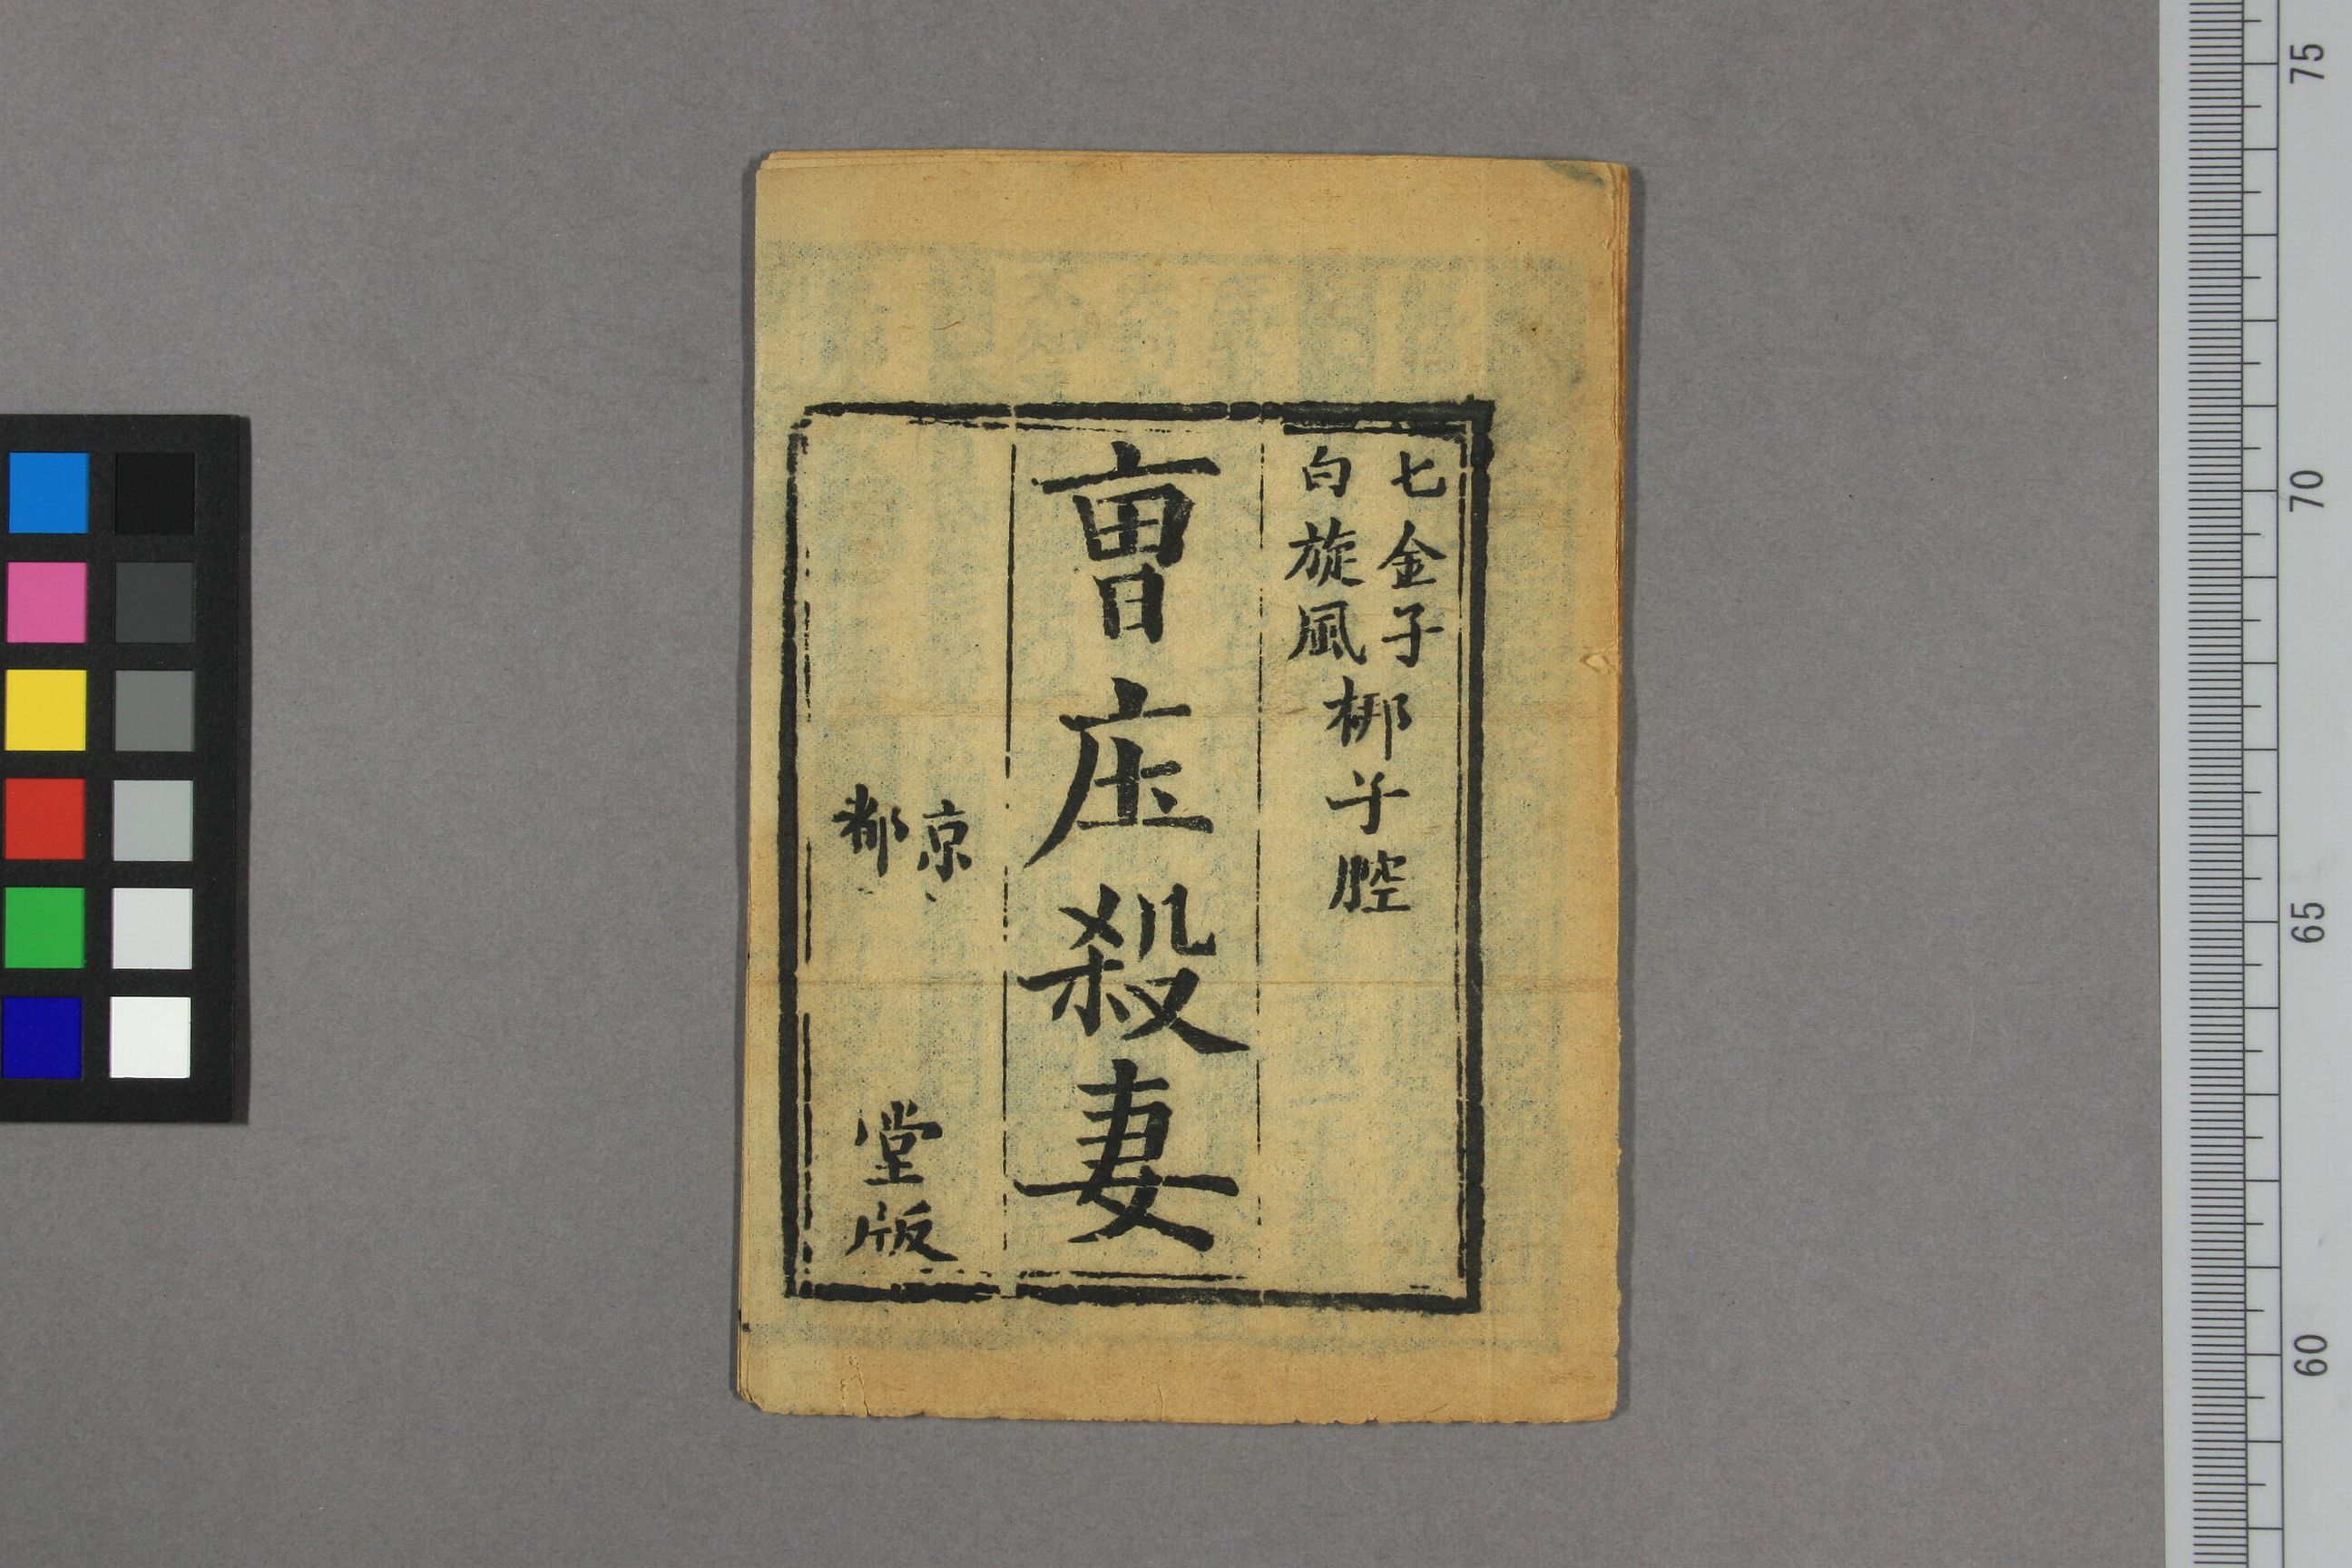 七金子
白旋風
梆子腔
曺庄殺妻
京都
堂版
75
70
65
60